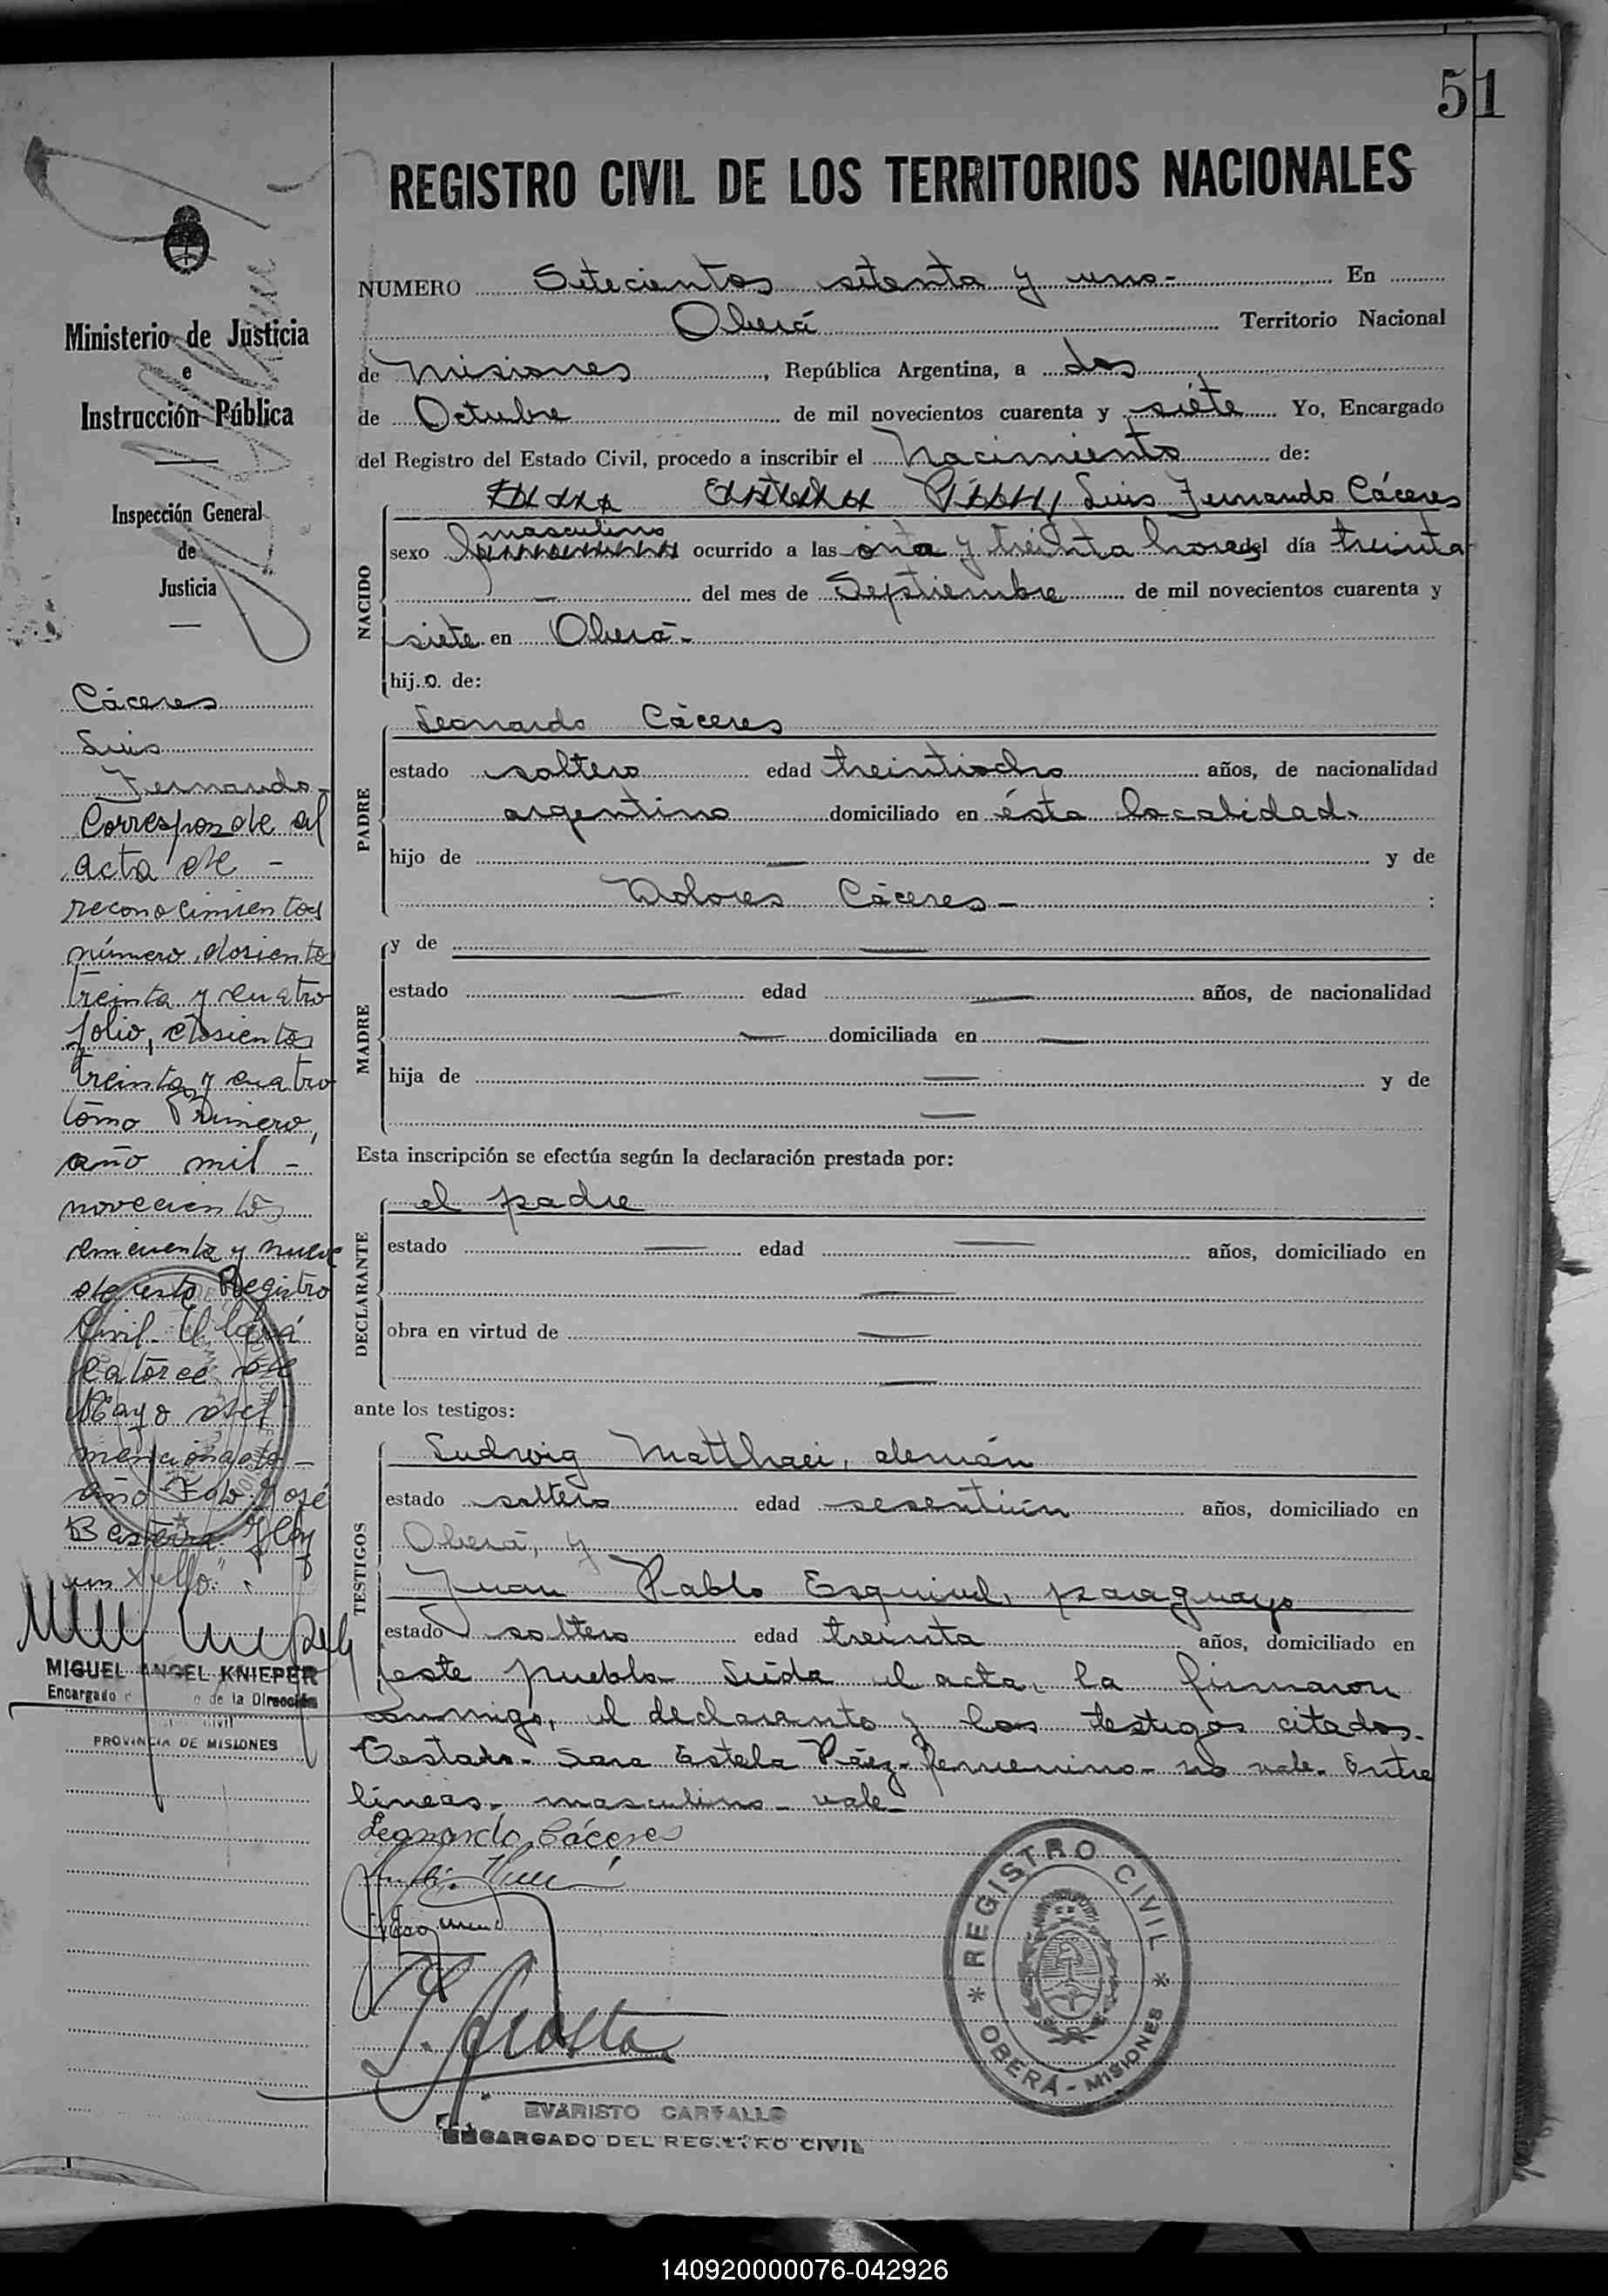 51
REGISTRO CIVIL DE LOS TERRITORIOS NACIONALES
Ministerio de Justicia
e
Instrucción Pública
Inspección General
de
Justicia
Cáceres
Luis
Fernando
Corresponde al
acta de -
reconocimientos
número, dosiento
treinta y cuatro
folio, dosientos
treinta y cuatro
tomo Primero,
año mil -
novecientos
cincuenta y nueve
de este Registro
Civil
catorce de
Mayo del
mencionado -
año José
MIGUEL ANGEL KNIEPER
Encargado de la Dirección
Civil
PROVINCIA DE MISIONES
NUMERO Setecientos setenta y uno- En
Oberá Territorio Nacional
de Misiones, República Argentina, a dos
de Octubre de mil novecientos cuarenta y siete Yo, Encargado
del Registro del Estado Civil, procedo a inscribir el Nacimiento de:
NACIDO
Luis Fernando Cáceres
masculino
sexo ocurrido a las y treinta horas del día treinta
del mes de Septiembre de mil novecientos cuarenta y
siete en Oberá-
hijo de:
PADRE
Leonardo Cáceres
estado soltero edad treintiocho años, de nacionalidad
argentino domiciliado en ésta localidad.
hijo de — y de
Dolores Cáceres- :
MADRE
y de —
estado — edad — años, de nacionalidad
— domiciliada en —
hija de — y de
—
Esta inscripción se efectúa según la declaración prestada por:
DECLARANTE
el padre
estado — edad — años, domiciliado en
—
obra en virtud de —
—
ante los testigos:
TESTIGOS
Ludwig Matthaei, alemán
estado soltero edad sesentiún años, domiciliado en
Oberá, y
Juan Pablo Esquivel, paraguayo
estado soltero edad treinta años, domiciliado en
este pueblo Leída el acta, la firmaron
conmigo, el declarante y los testigos citados.
Testado- Sara Estela Páez- femenino- no vale. Entre
líneas- masculino- vale-
Leonardo Cáceres
REGISTRO CIVIL
OBERÁ - MISIONES
EVARISTO CARVALLO
ENCARGADO DEL REGISTRO CIVIL
140920000076-042926